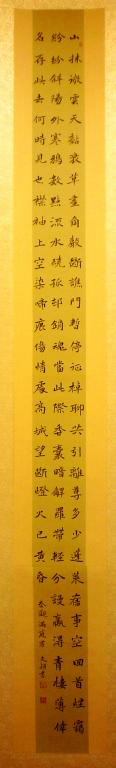 山抹微雲天黏衰草畫角聲斷譙門暫停征棹聊共引離尊多少蓬萊舊事空回首煙靄
紛紛斜陽外寒鴉數點流水繞孤邨銷魂當此際香囊暗解羅帶輕分謾贏得青樓薄倖
名存此去何時見也襟袖上空染啼痕傷情處高城望斷燈火已黃昏
秦觀滿庭芳